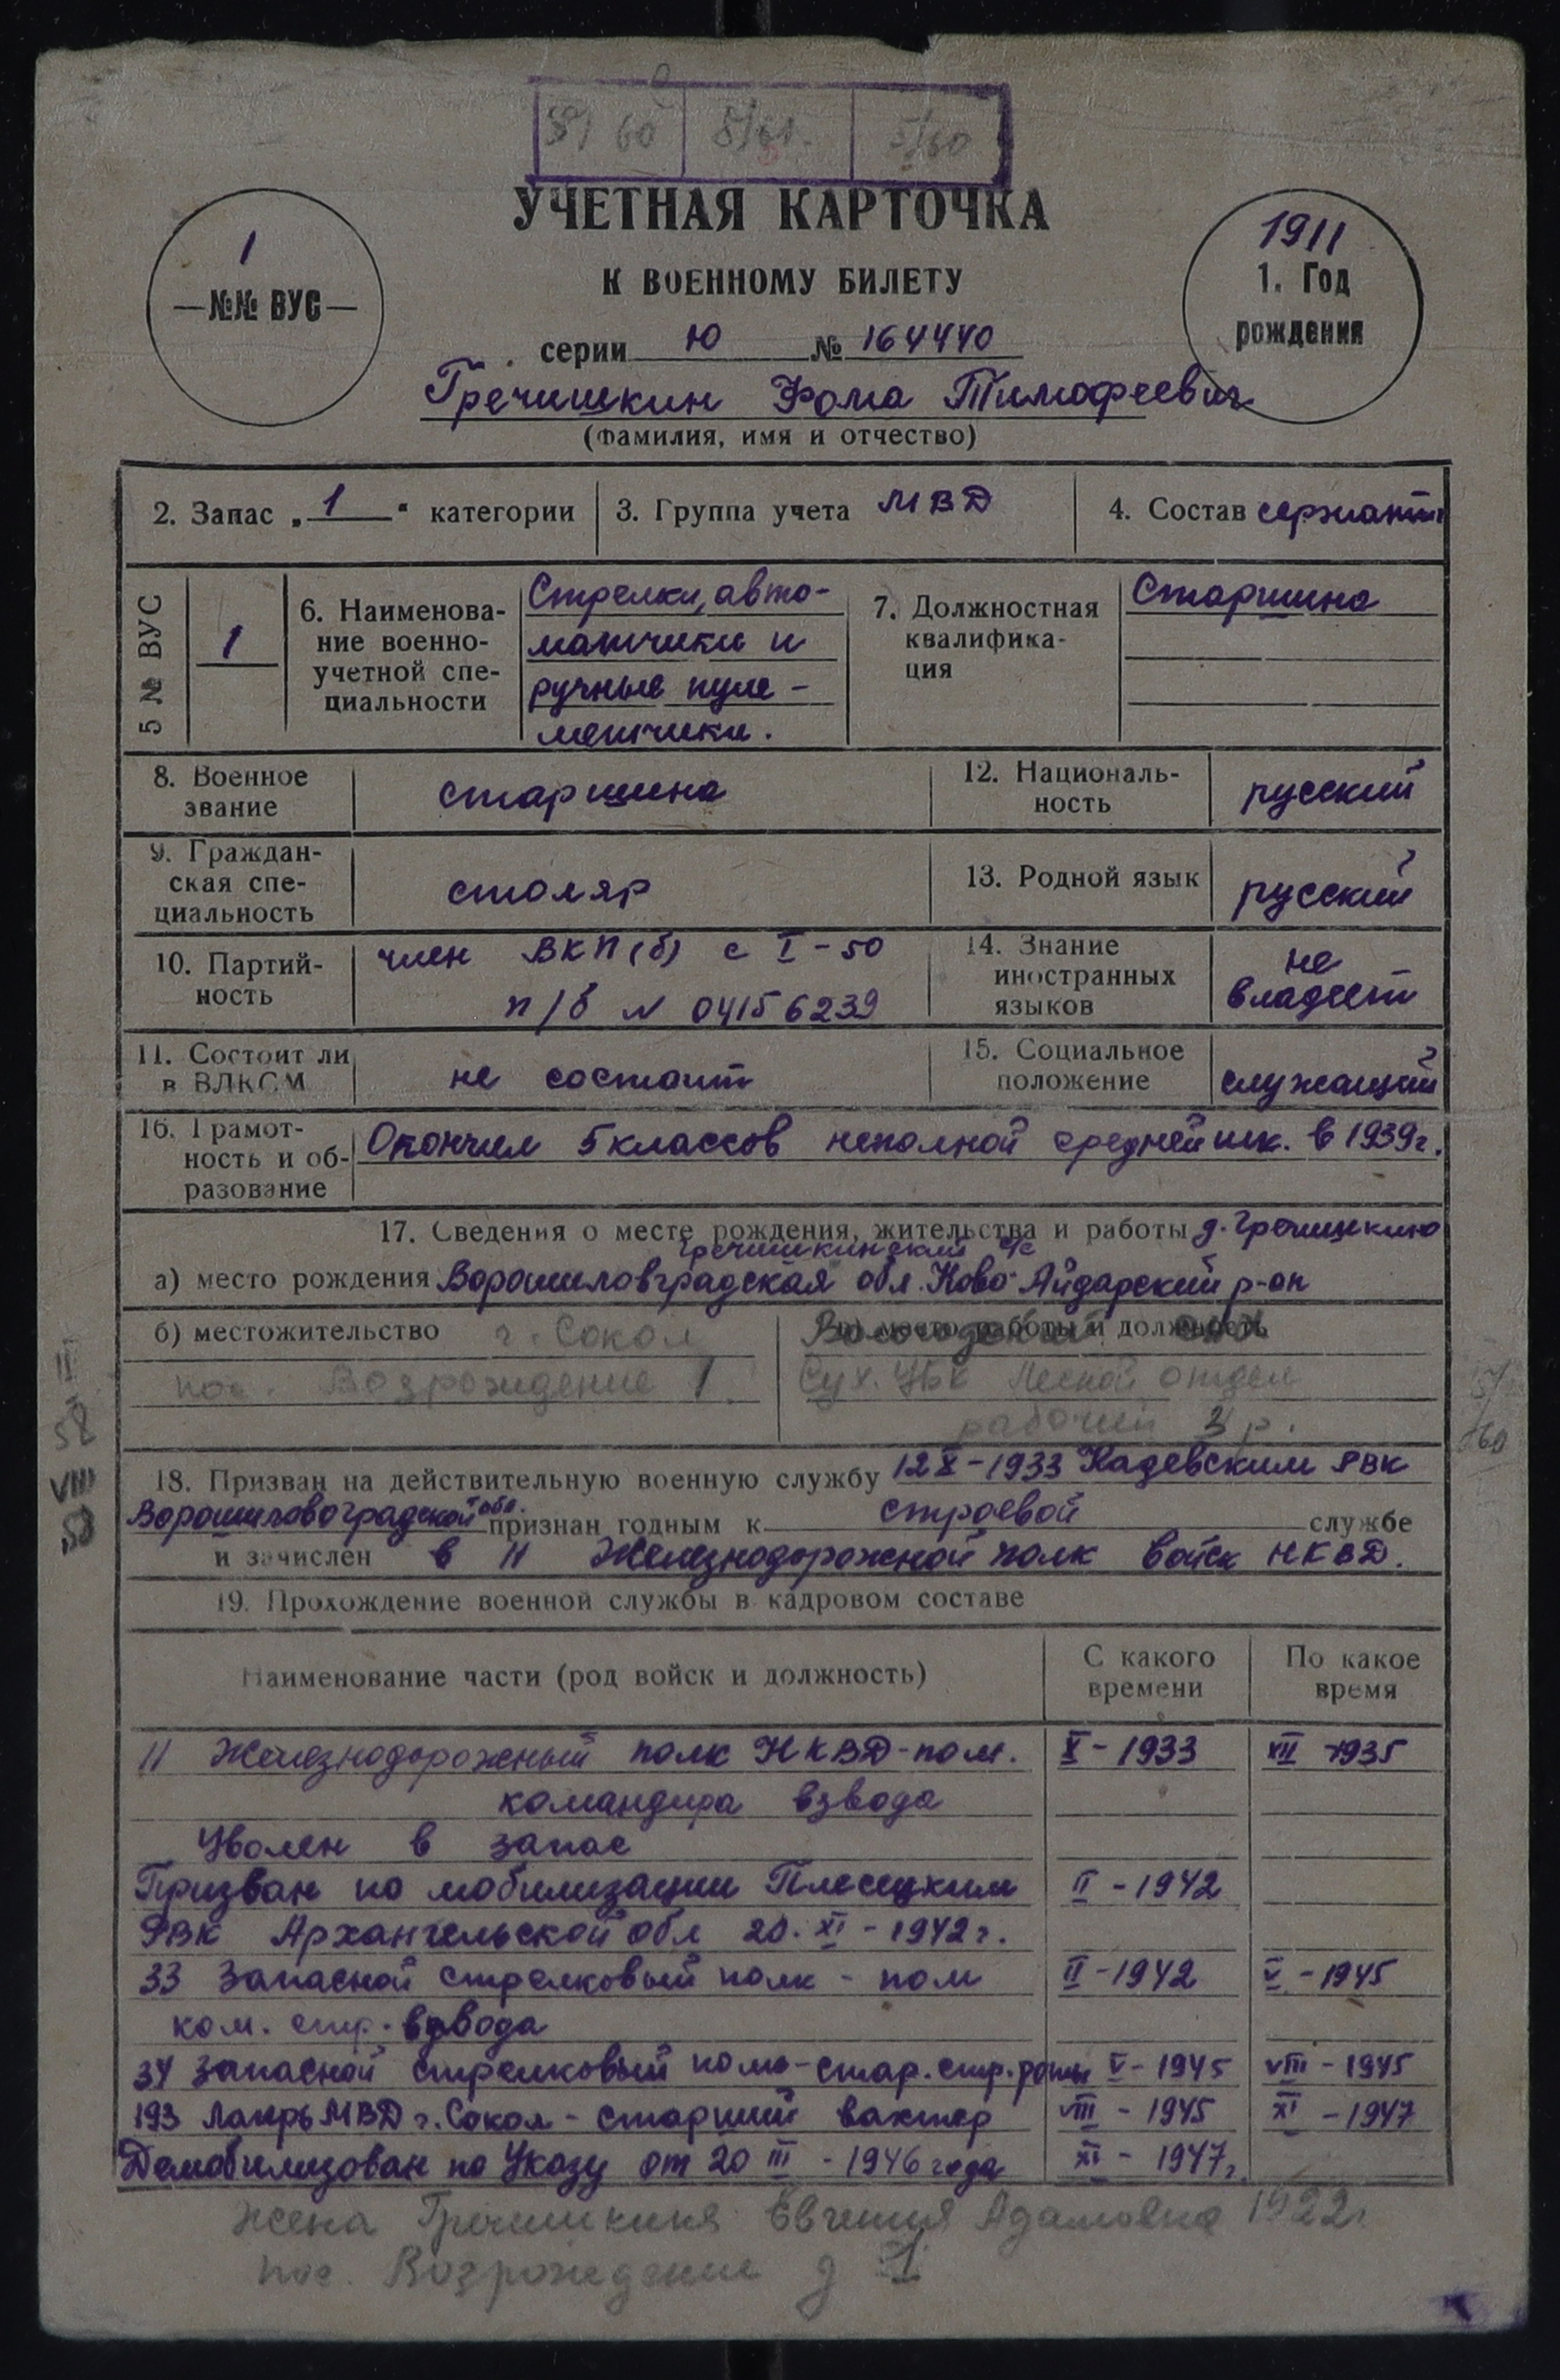 59/60 5/61. 5/60
УЧЕТНАЯ КАРТОЧКА
К ВОЕННОМУ БИЛЕТУ
1
—№№ ВУС—
1911
1. Год
рождения
серии Ю № 164440
Гречишкин Фома Тимофеевич
(Фамилия, имя и отчество)
2. Запас „ 1 “ категории
3. Группа учета МВД
4. Состав сержант.
5 № ВУС
1
6. Наименова-
ние военно-
учетной спе-
циальности
Стрелки, авто-
матчики и
ручные пуле-
метчики.
7. Должностная
квалифика-
ция
Старшина
8. Военное
звание
старшина
12. Националь-
ность
русский
9. Граждан-
ская спе-
циальность
столяр
13. Родной язык
русский
10. Партий-
ность
член ВКП(б) с I-50
п/б N 04156239
14. Знание
иностранных
языков
не
владеет
11. Состоит ли
в ВЛКСМ
не состоит
15. Социальное
положение
служащий
16. Грамот-
ность и об-
разование
Окончил 5 классов неполной средней шк. в 1939г.
17. Сведения о месте рождения, жительства и работы д. Гречишкино
Гречишкинский с/с
а) место рождения Ворошиловградская обл. Ново-Айдарский р-он
б) местожительство г. Сокол
пос. Возрождение 1.
в) место работы и должность
Сух. ЦБК Лесной отдел
рабочий 3 р.
II
58
VIII
58
5/
60
18. Призван на действительную военную службу 12 X-1933 Кадевским РВК
Ворошиловоградской обл. признан годным к строевой службе
и зачислен в 11 Железнодорожной полк войск НКВД.
19. Прохождение военной службы в кадровом составе
Наименование части (род войск и должность)
С какого
времени
По какое
время
11 Железнодорожный полк НКВД-пом. X-1933 XII-1935
командира взвода
Уволен в запас
Призван по мобилизации Плесецким II-1942
РВК Архангельской обл 20. XI-1942г.
33 Запасной стрелковый полк - пом II-1942 V-1945
ком. стр. взвода
34 запасной стрелковый полк-стар. стр. роты V-1945 VIII-1945
193 Лагерь МВД г. Сокол - старший вахтер VIII-1945 XI-1947
Демобилизован по Указу от 20 III-1946 года XI-1947г.
Жена Гречишкина Евгения Адамовна 1922г.
пос. Возрождение д 1